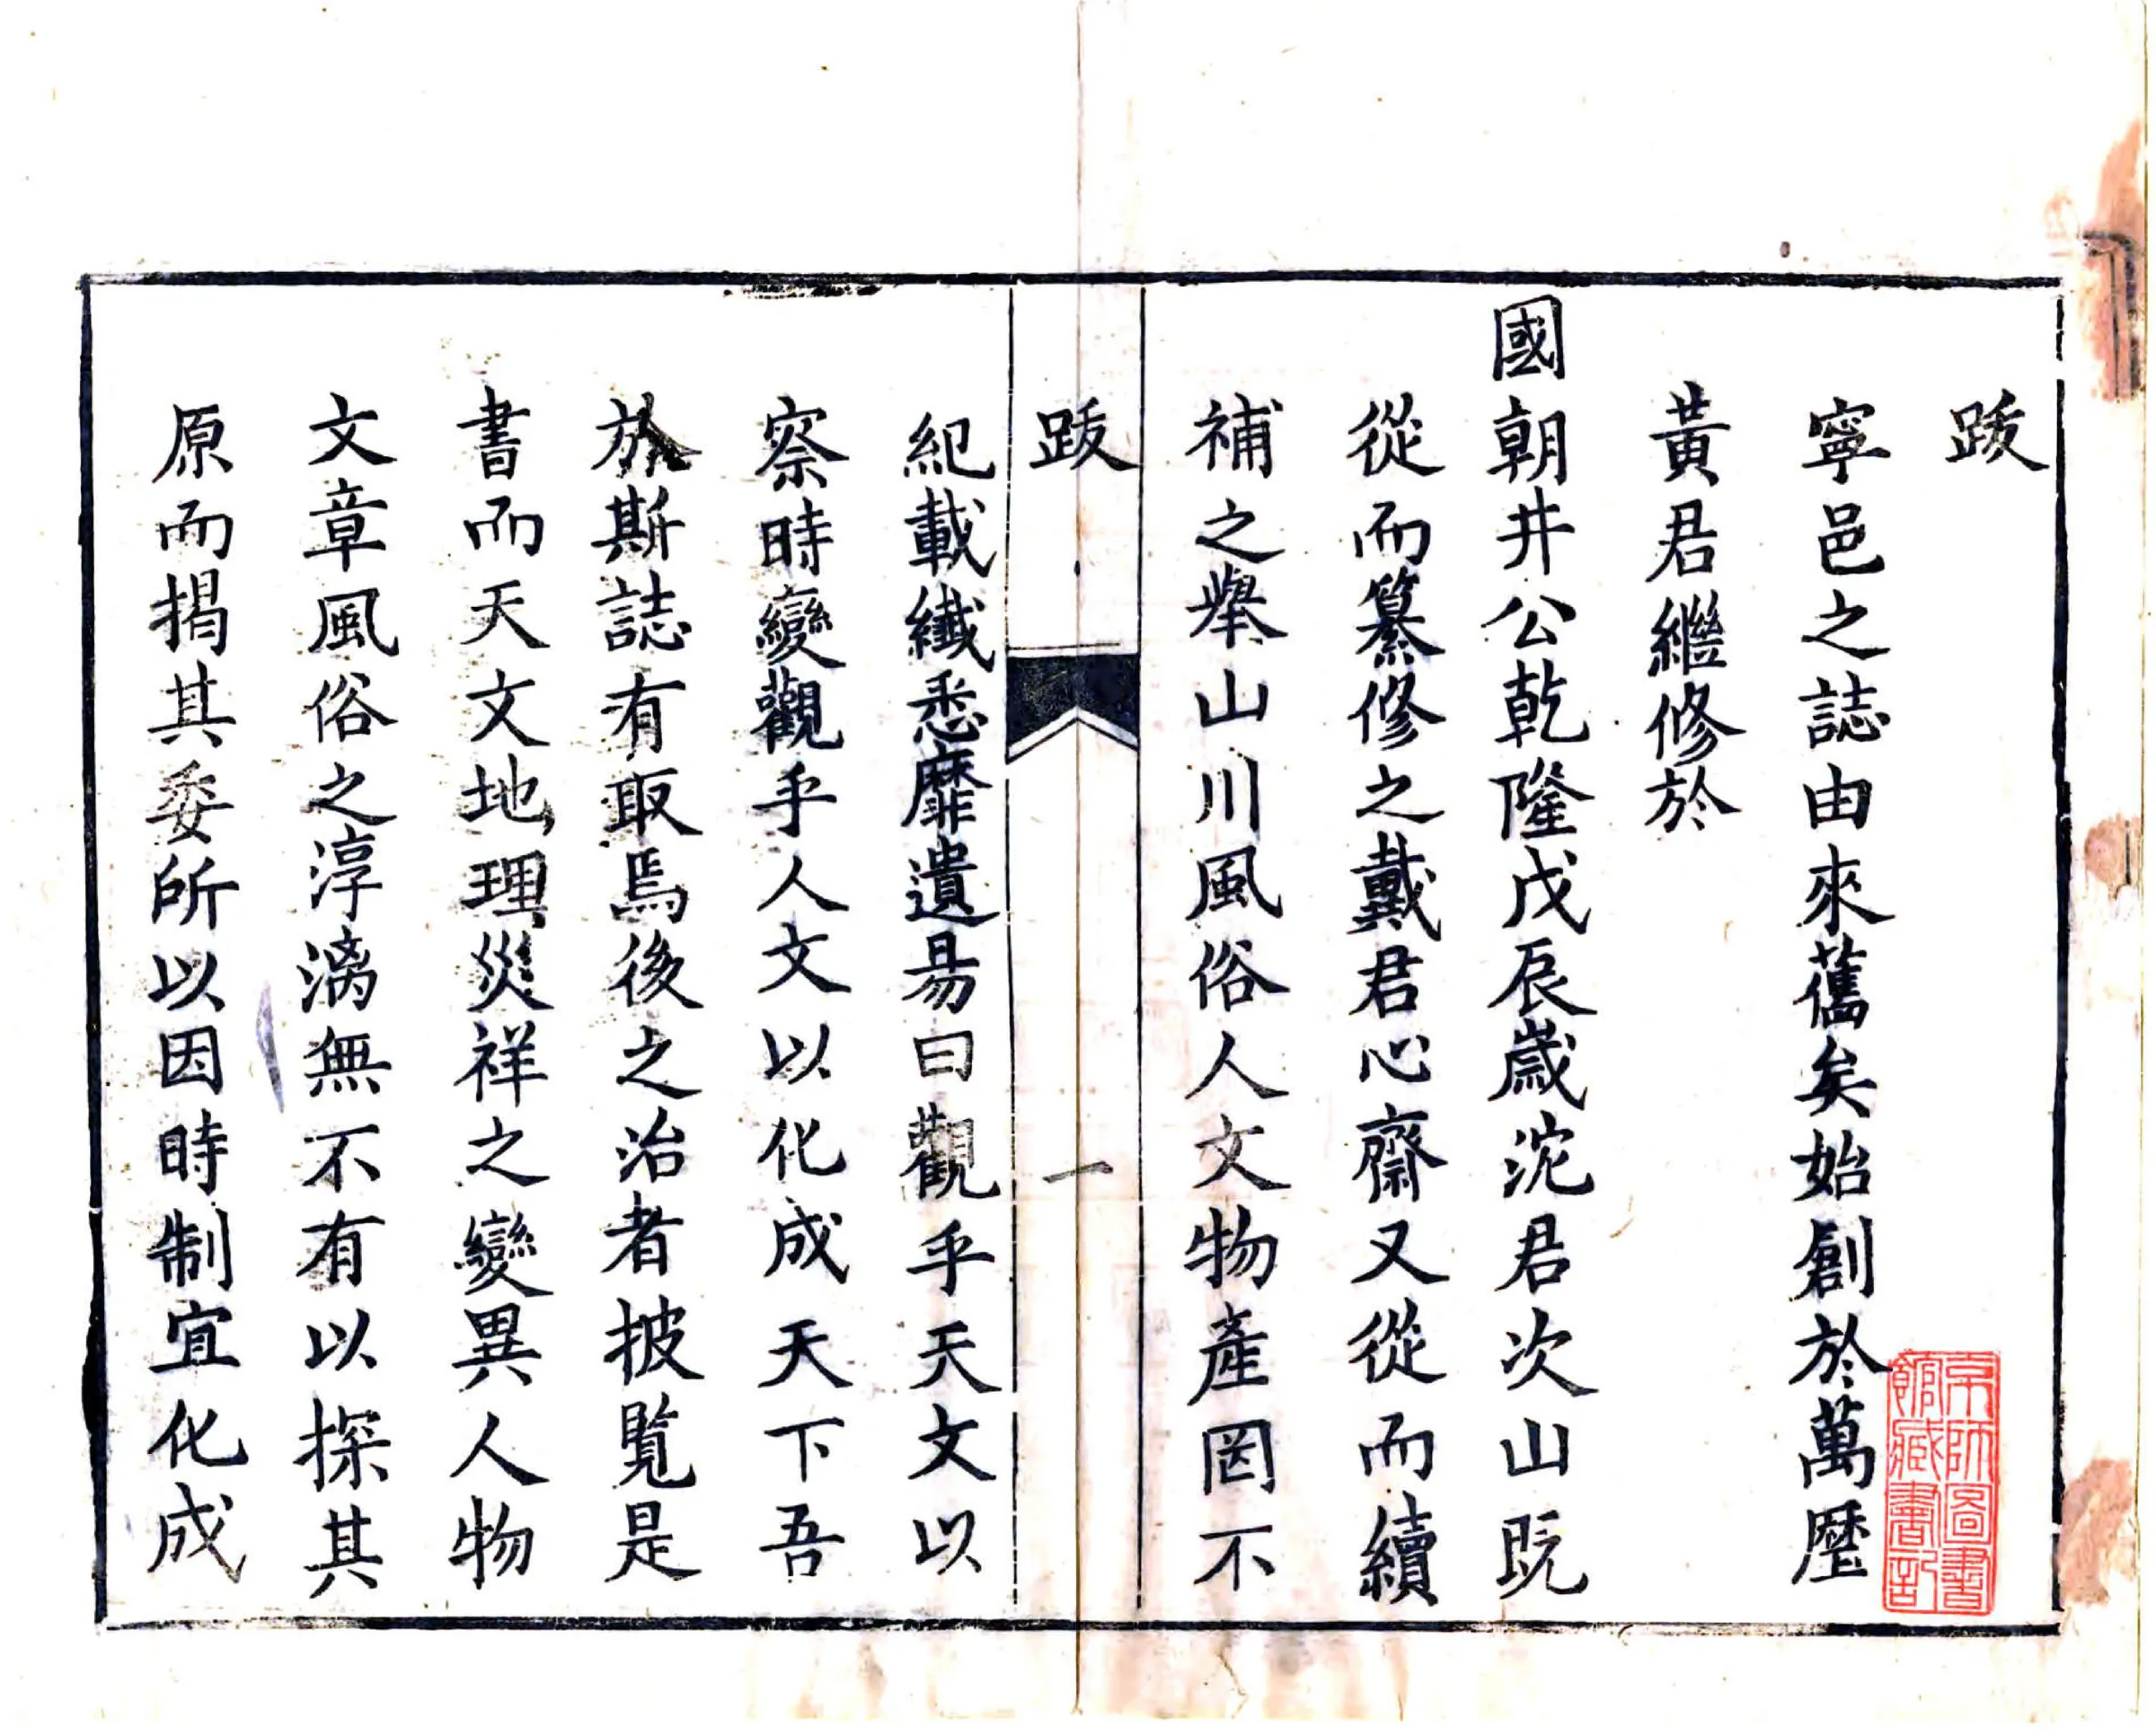 跋
寧邑之誌由來舊矣始創於萬歷
黃君繼修於
國朝井公乾隆戊辰歲沱君次山既
從而纂修之戴君心齋又從而續
補之舉山川風俗人文物產罔不
跋
一
紀載纖悉靡遺易曰觀乎天文以
察時變觀乎人文以化成天下吾
於斯誌有取焉後之治者披覧是
書而天文地理災祥之變異人物
文章風俗之淳漓無不有以探其
原而揭其委所以因時制宜化成
京師圖書
館藏書記